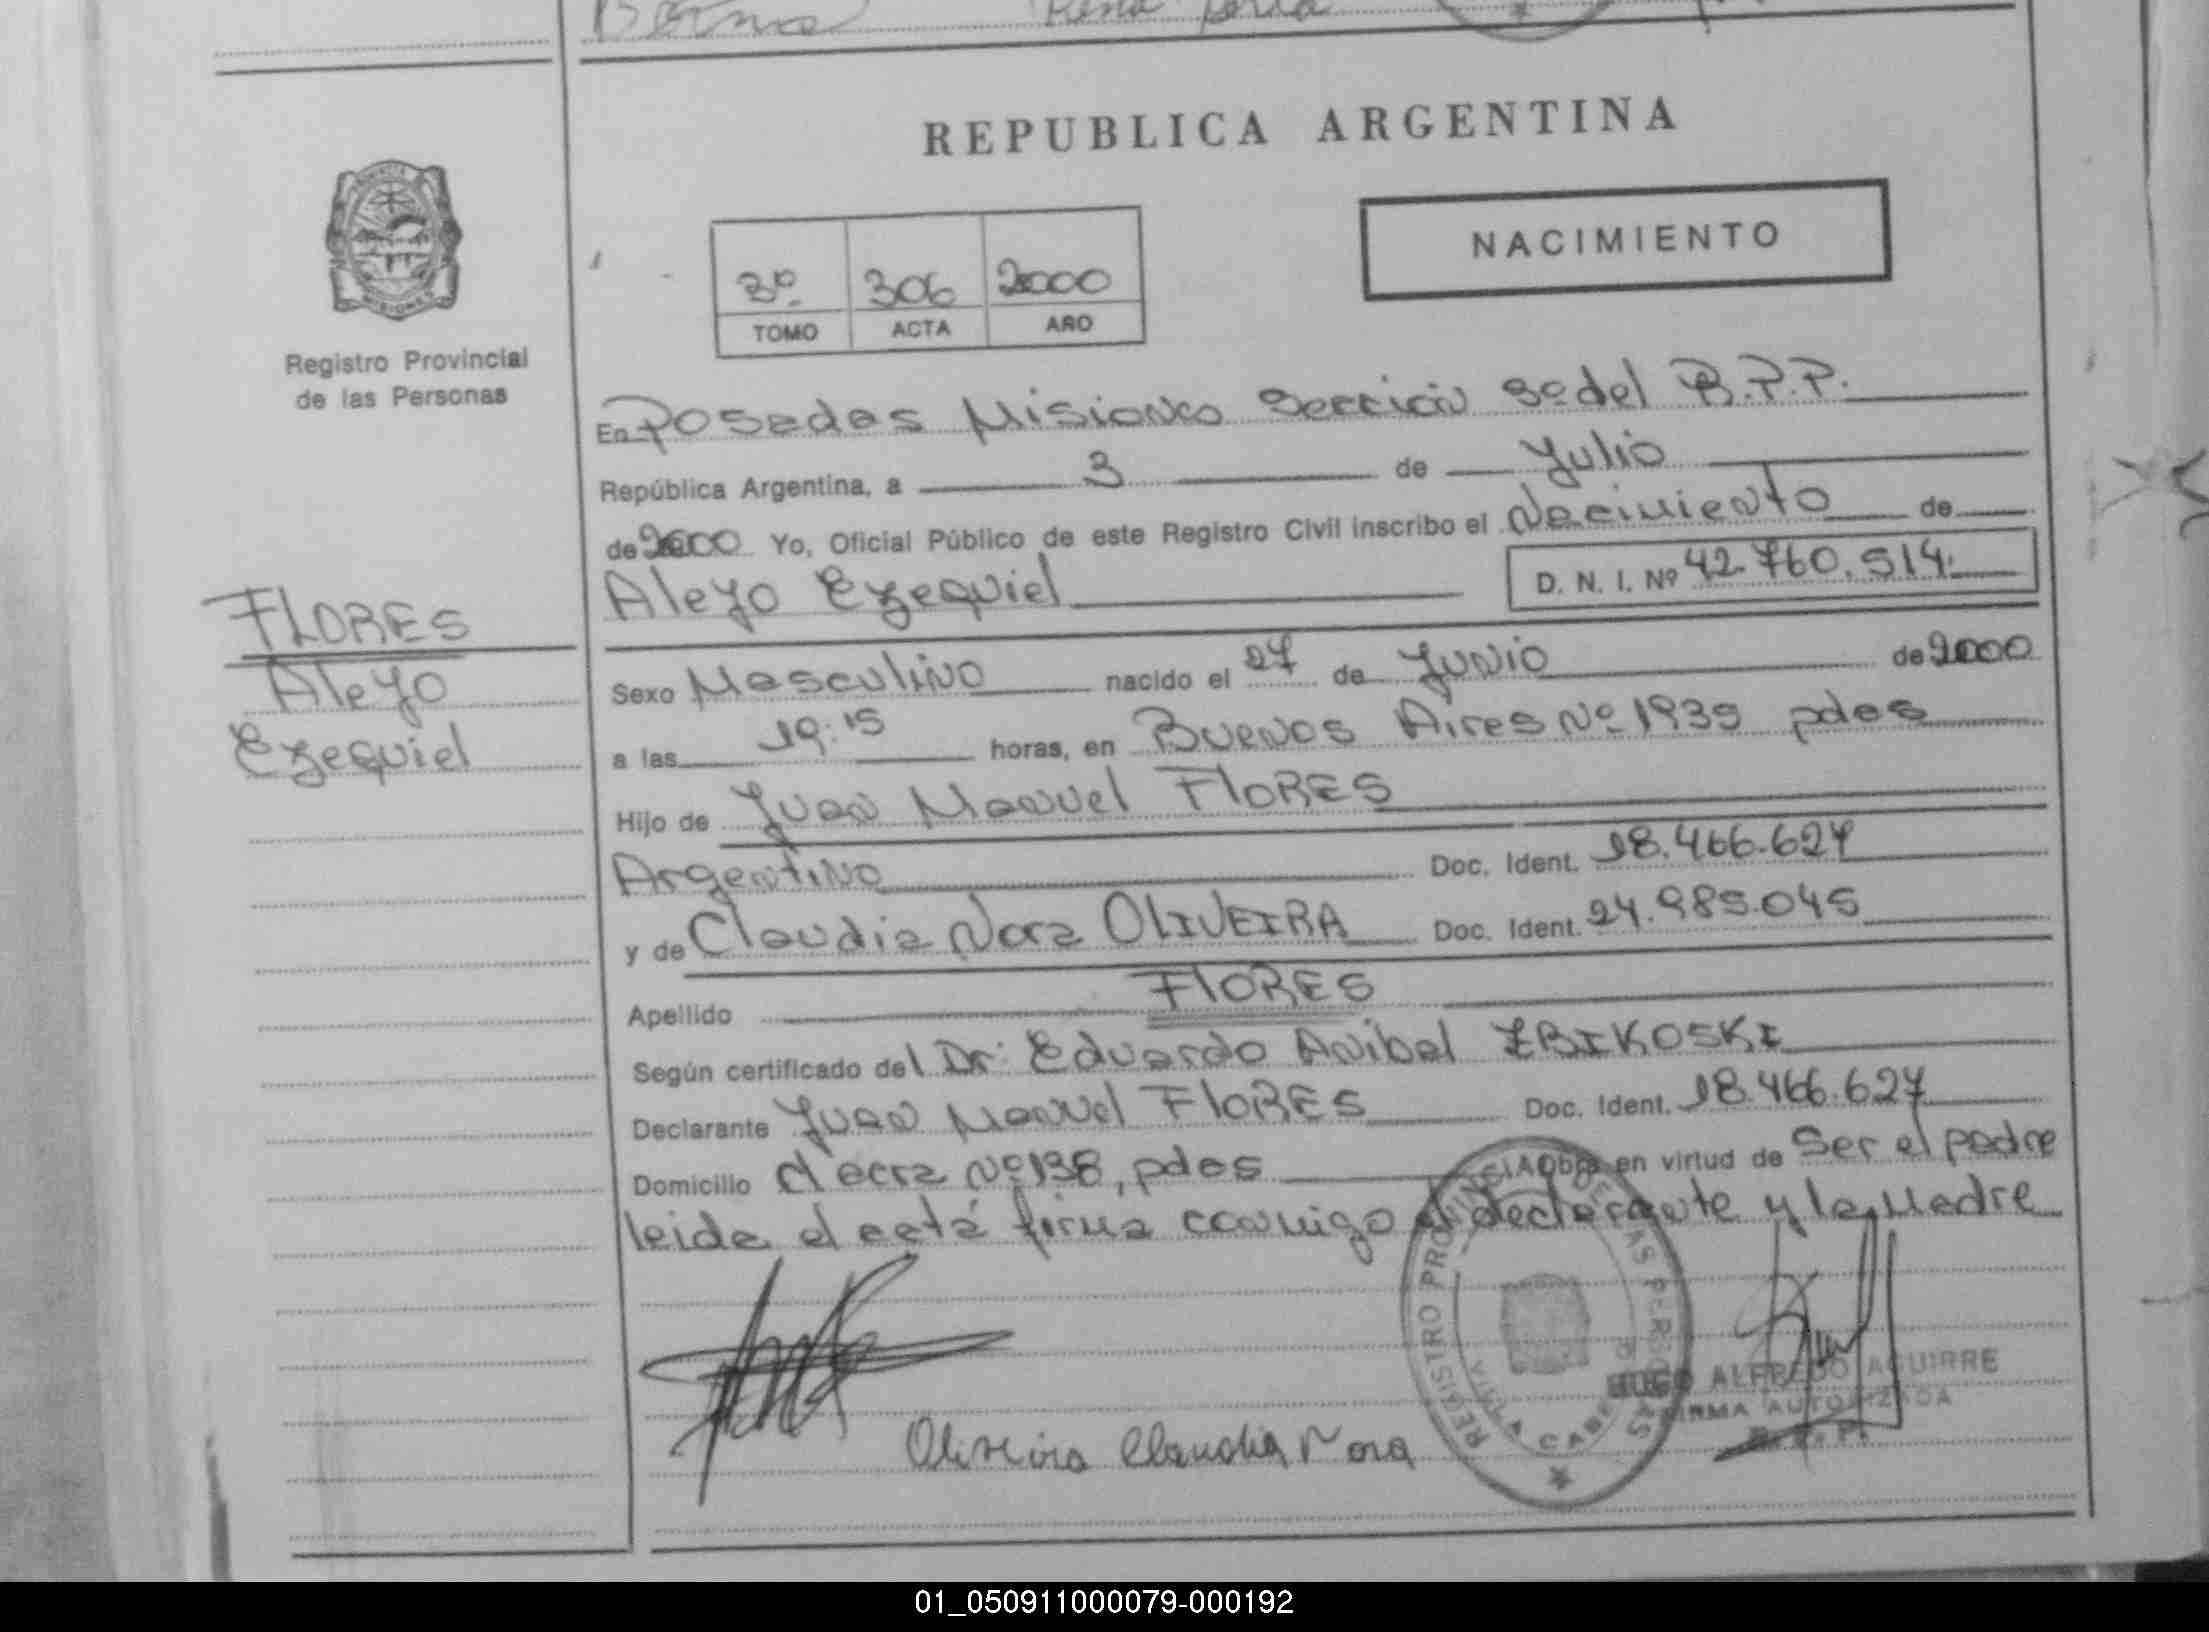 REPUBLICA ARGENTINA
NACIMIENTO
3º 306 2000
TOMO ACTA AÑO
Registro Provincial
de las Personas
En Posadas Misiones Sección 3º del R.P.P.
República Argentina, a 3 de Julio
de 2000 Yo, Oficial Público de este Registro Civil inscribo el Nacimiento de
Aleyo Ezequiel D. N. I. Nº 42.760.514.
FLORES
Aleyo
Ezequiel
Sexo Masculino nacido el 27 de Junio de 2000
a las 19:15 horas, en Buenos Aires Nº 1939 pdas
Hijo de Juan Manuel FLORES
Argentino Doc. Ident. 18.466.627
y de Claudia Nora OLIVEIRA Doc. Ident. 24.985.045
Apellido FLORES
Según certificado del Dr. Eduardo Anibal ZBIKOSKI
Declarante Juan Manuel FLORES Doc. Ident. 18.466.627
Domicilio Nº 138, pdas Obra en virtud de Ser el padre
leida el acta firma conmigo el declarante y la Madre
Oliveira Claudia Nora
REGISTRO PROVINCIAL DE LAS PERSONAS
VILLA CABELLO
HUGO ALFREDO AGUIRRE
FIRMA AUTORIZADA
R. P. P.
01_050911000079-000192